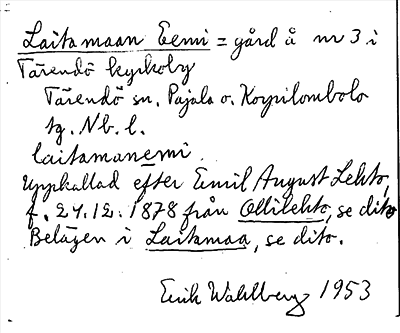 Laitamaan Eemi = gård å nr 3 i
Tärendö kyrkoby
Tärendö sn. Pajala o. Korpilombolo
tg. Nb. l.
laitamanemi.
Uppkallad efter Emil August Lehto,
f. 24.12. 1878 från Ollilehto, se dito
Belägen i Laitamaa, se dito.
Erik Wahlberg 1953